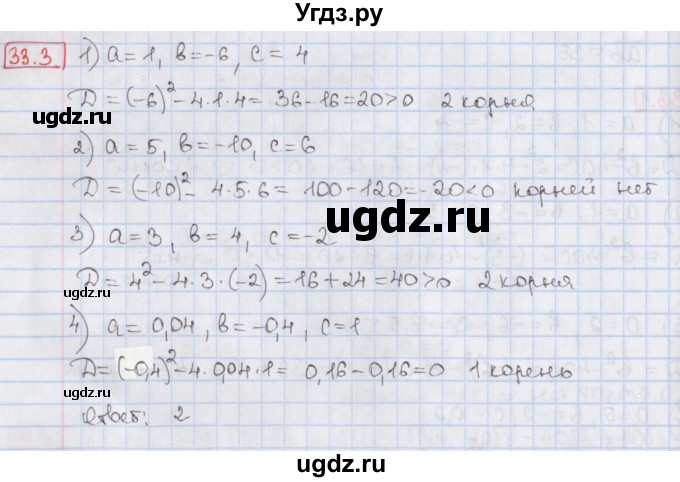 Угдз.ру
33.3 1) a=1, b=-6, c=4
D=(-6)²-4·1·4=36-16=20>0 2 корня
2) a=5, b=-10, c=6
D=(-10)²-4·5·6=100-120=-20<0 корней нет
ugdz.ru
3) a=3, b=4, c=-2
D=4²-4·3·(-2)=16+24=40>0 2 корня
4) a=0,04, b=-0,4, c=1
D=(-0,4)²-4·0,04·1=0,16-0,16=0 1 корень
Ответ: 2
ugdz.ru